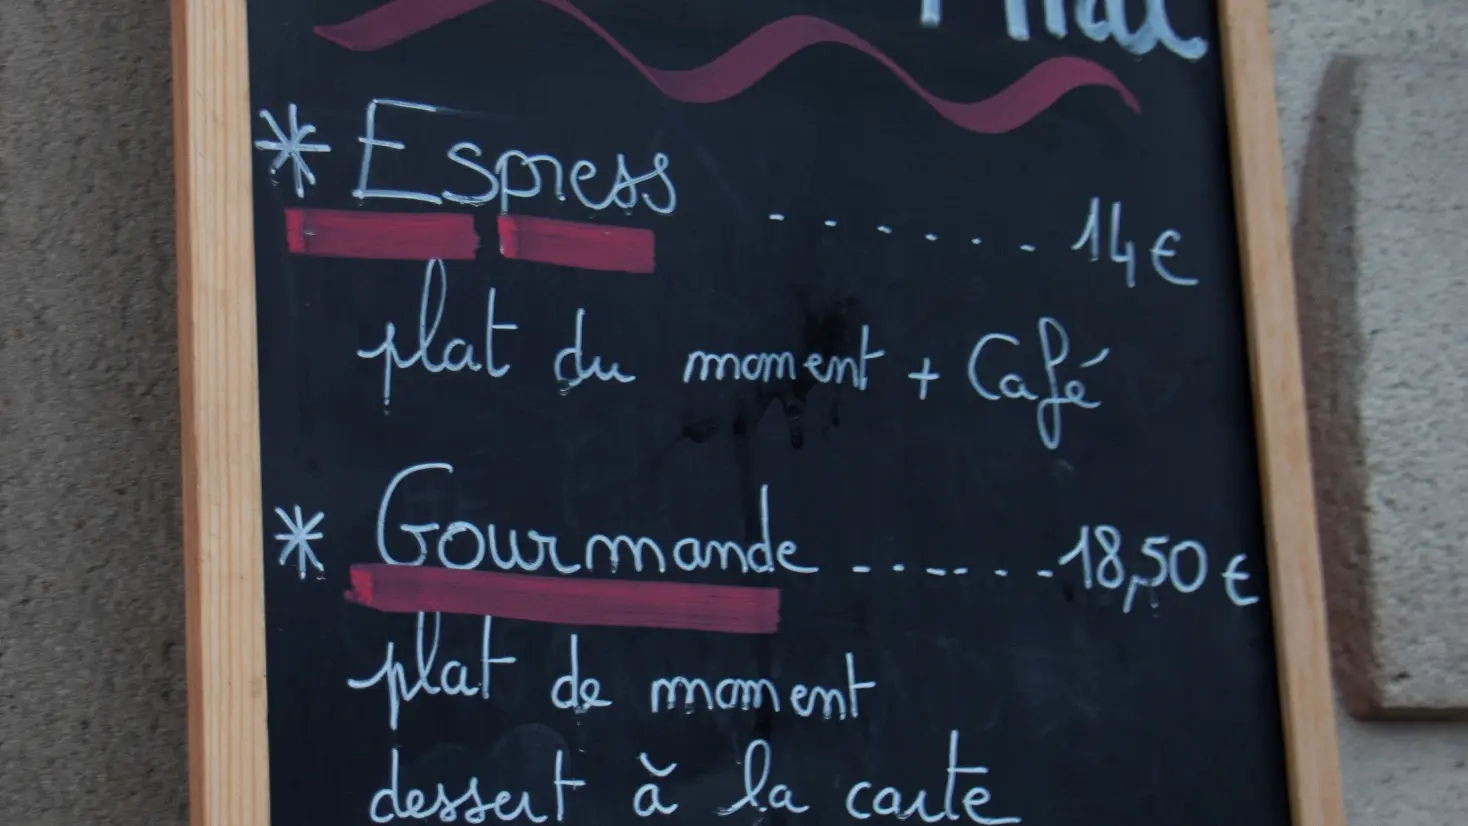 * Espress ...... 14€
plat du moment + Café
* Gourmande ...... 18,50€
plat de moment
dessert à la carte